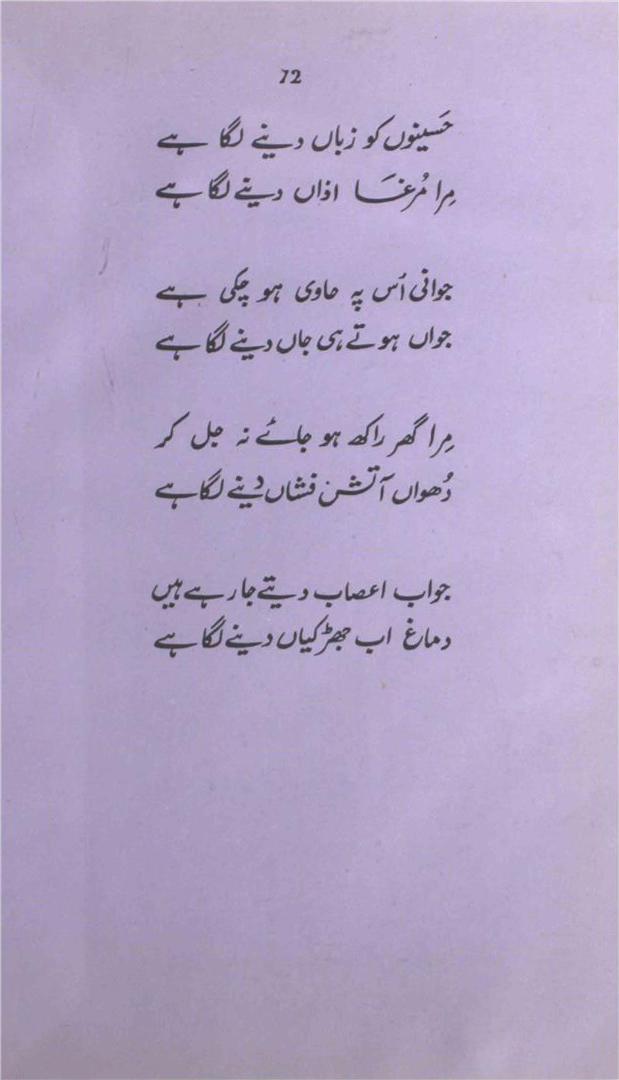 72
حَسینوں کو زباں دینے لگا ہے
مِرا مُرغَا اذاں دینے لگا ہے
جوانی اُس پہ حاوی ہو چکی ہے
جواں ہوتے ہی جاں دینے لگا ہے
مِرا گھر راکھ ہو جائے نہ جل کر
دُھواں آتش فشاں دینے لگا ہے
جواب اعصاب دیتے جا رہے ہیں
دماغ اب جھڑکیاں دینے لگا ہے